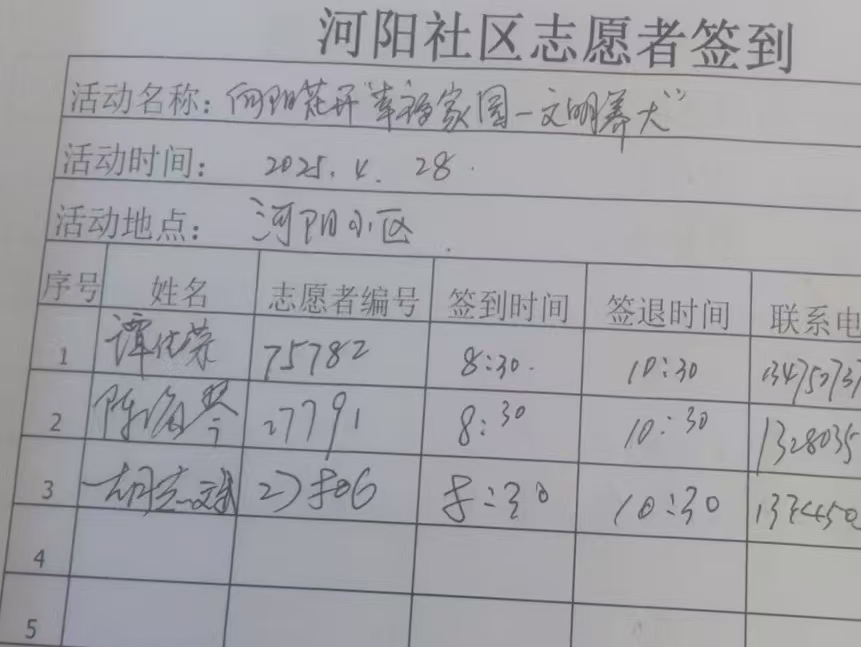 河阳社区志愿者签到
活动名称：向阳花开"幸福家园一文明养犬"
活动时间：2025.4.28.
活动地点：河阳小区
序号 姓名 志愿者编号 签到时间 签退时间 联系电
1 谭 荣 75782 8:30 10:30 13475737
2 陈 琴 27791 8:30 10:30 1328035
3 胡志斌 27806 8:30 10:30 1374450
4
5